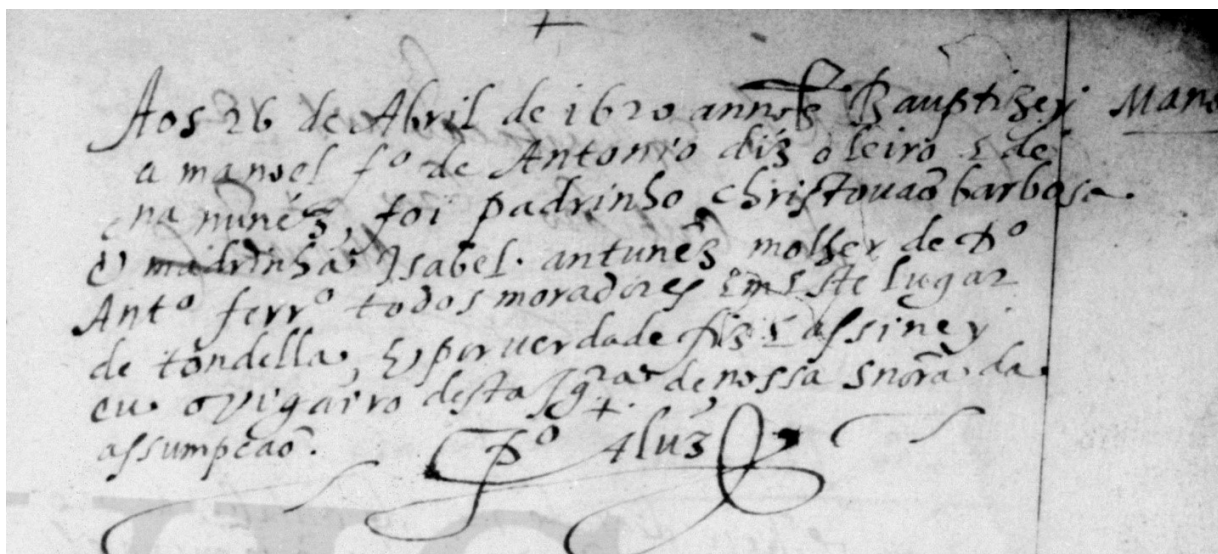 Aos 26 de Abril de 1620 annos Bauptizey Mano
a manoel fº de Antonio diz oleiro e de
na nunéz, foi padrinho christovaõ barbosa.
e madrinha Isabel. antunẽz molher de Pº
Antº ferrº todos moradores em este lugar
de tondella, e por verdade fiz e assiney
eu o vigairo desta Igra de nossa snora da
assumpcaõ. Pº Aluz